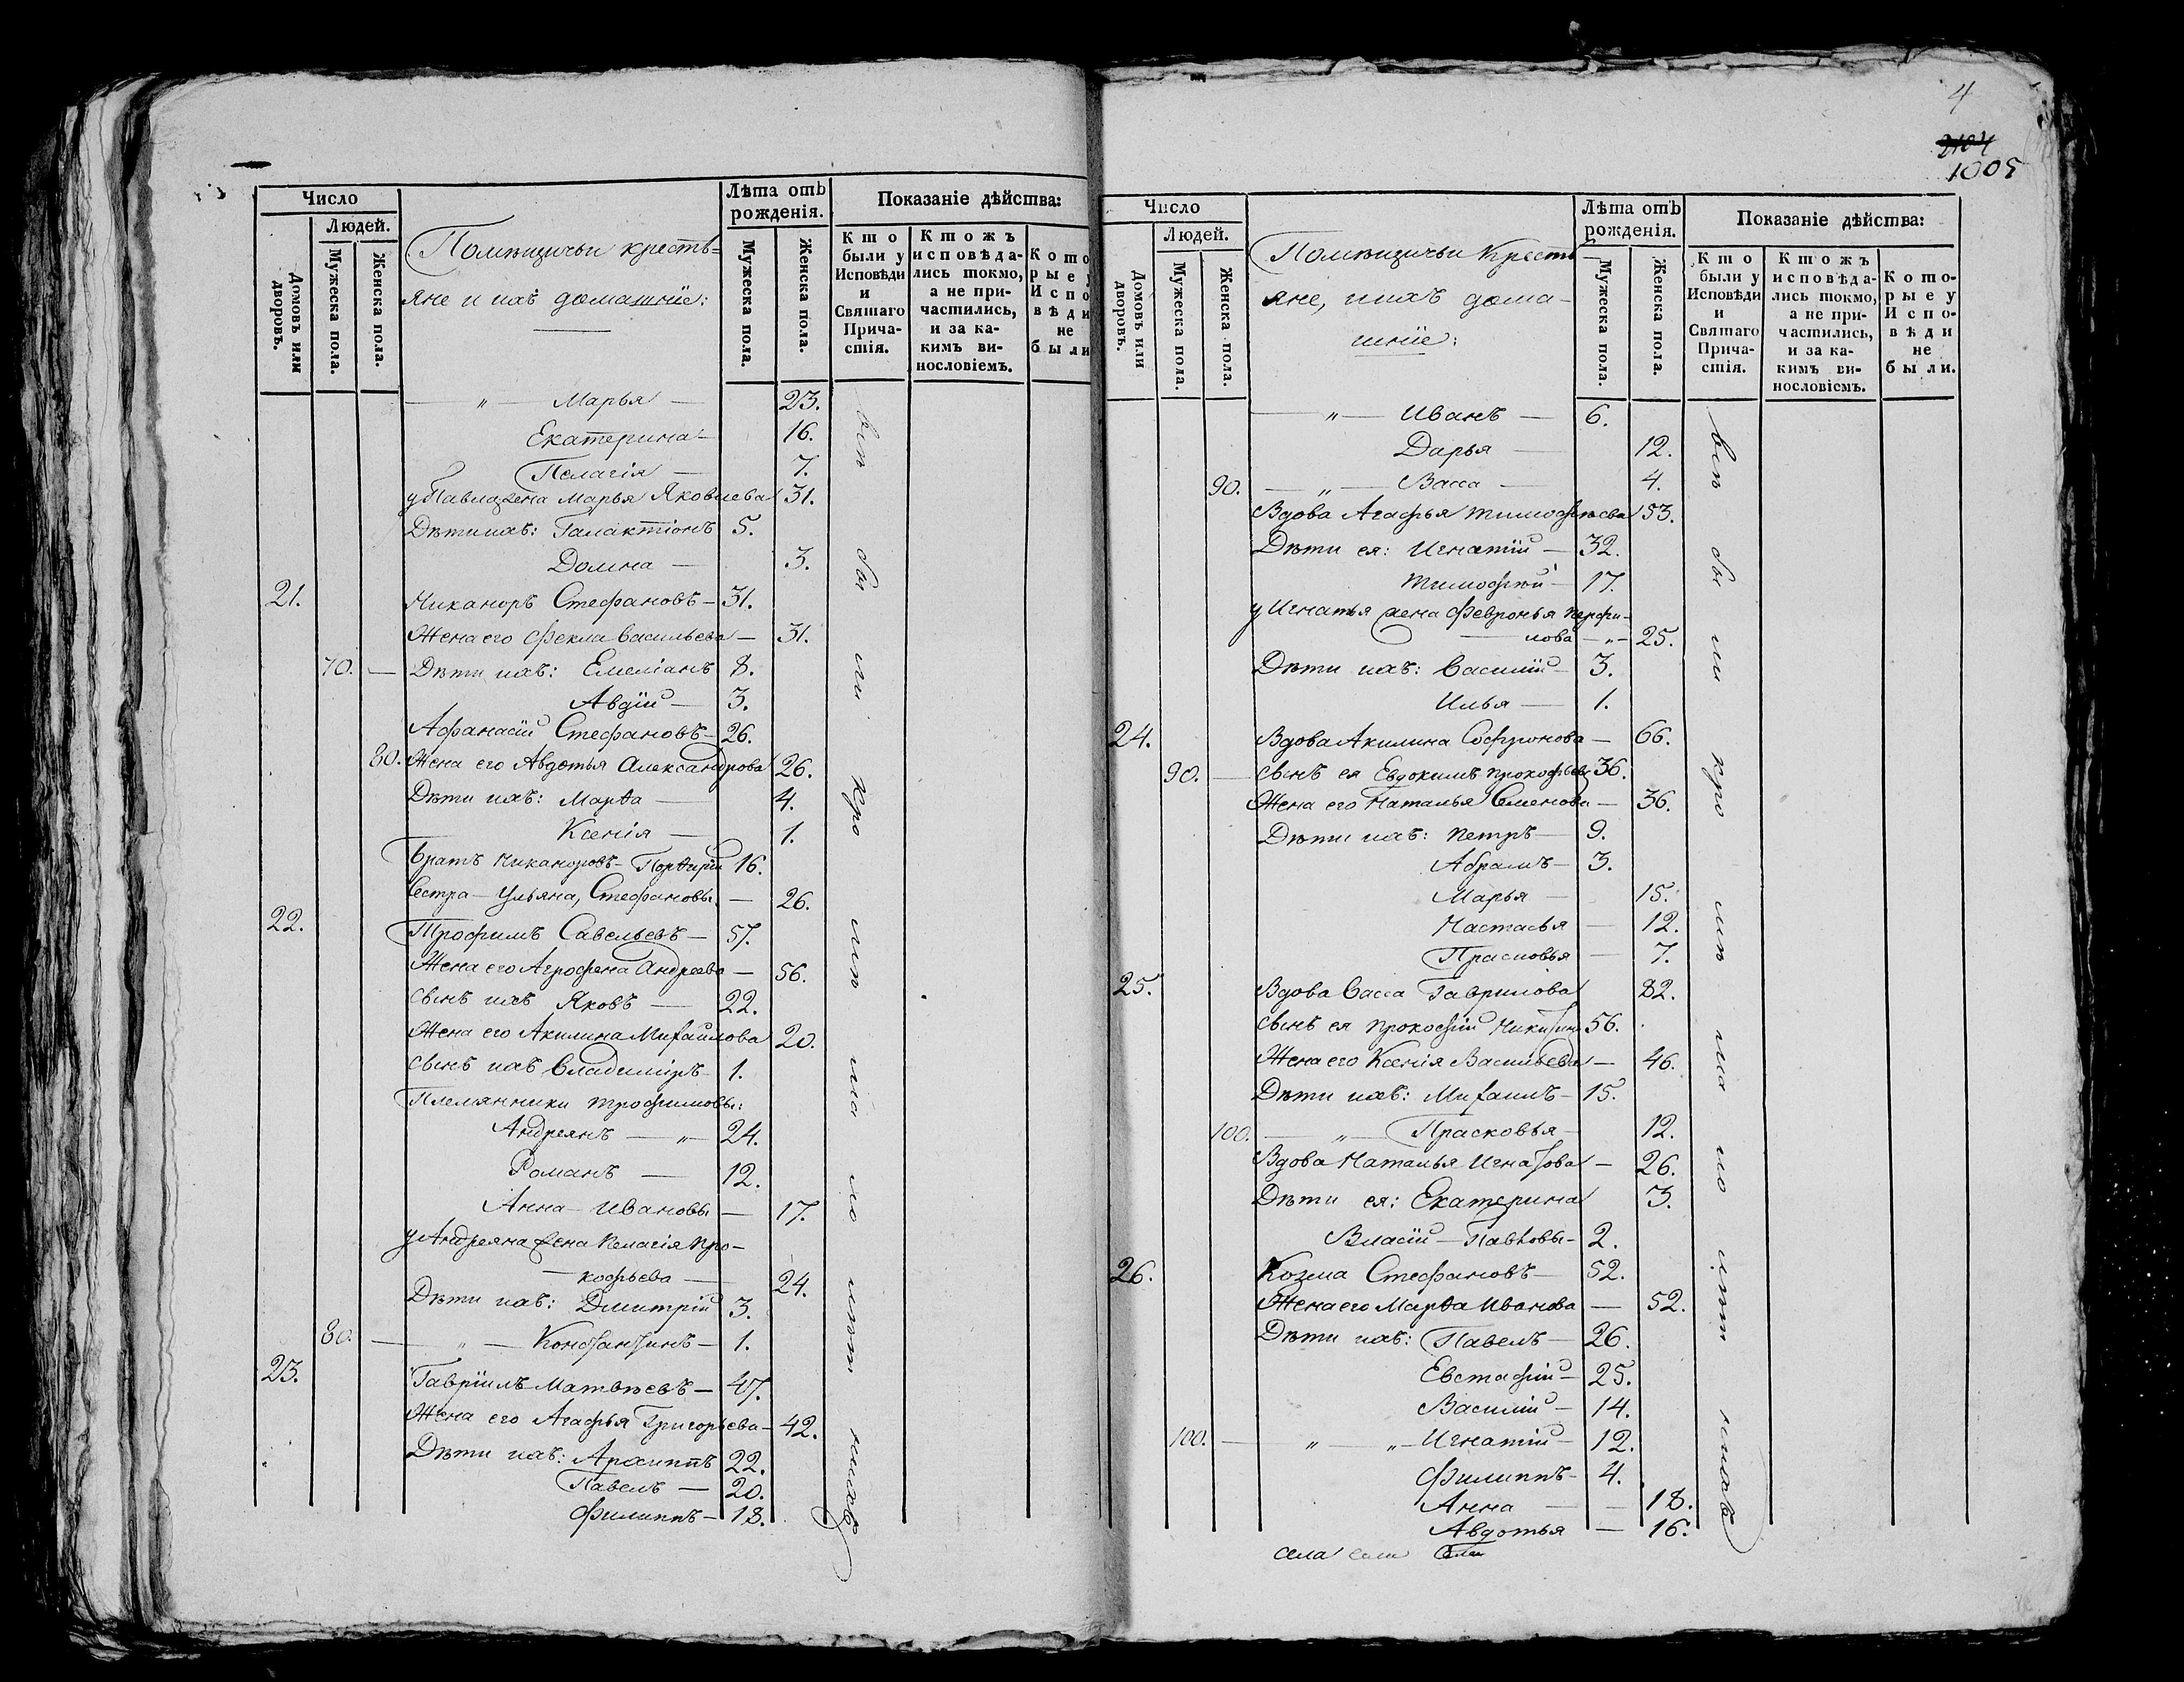 Число
Людей.
Домовъ или дворовъ.
Мужеска пола.
Женска пола.
Помѣщичьи кресть-
яне и ихъ домашнїе:
Лѣта отъ рожденія.
Мужеска пола.
Женска пола.
Показаніе дѣйства:
Кто были у Исповѣди и Святаго Прича-стія.
Ктожъ исповѣда-лись токмо, а не при-частились, и за ка-кимъ ви-нословіемъ.
Кото рые у Испо вѣди не были
— „ — Марья — 23.
Екатерина — 16.
Пелагія — 7.
у Павла жена Марья Яковлева 31.
Дѣти ихъ: Галактіонъ 5.
Домна — 3.
21. Никаноръ Стефановъ — 31.
Жена его Фекла Васильева — 31.
70. — Дѣти ихъ: Емеліанъ 8.
Авдїй — 3.
Афанасїй Стефановъ — 26.
80. Жена его Авдотья Александрова 26.
Дѣти ихъ: Марѳа — 4.
Ксенія — 1.
Братъ Никаноровъ — Порѳирїй 16.
Сестра — Ульяна, Стефановы. — 26.
22. Трофимъ Савельевъ — 57.
Жена его Агрофена Андреева — 56.
Сынъ ихъ Яковъ — 22.
Жена его Акилина Михайлова 20.
Сынъ ихъ Владимїръ 1.
Племянники Трофимовы:
Андреянъ — „ — 24.
Романъ — 12.
Анна — Ивановы — 17.
у Андреяна жена Пелагія Про-
— кофьева — 24.
Дѣти ихъ: Дмитрїй 3.
80. — „ — Константинъ — 1.
23. Гаврїилъ Матвѣевъ — 47.
Жена его Агафья Григорьева — 42.
Дѣти ихъ: Архиппъ 22.
Павелъ — 20.
Филиппъ — 18.
4
2104
1005
Число
Людей.
Домовъ или дворовъ.
Мужеска пола.
Женска пола.
Помѣщичьи Кресть
яне, и ихъ дома-
шнїе:
Лѣта отъ рожденія.
Мужеска пола.
Женска пола.
Показаніе дѣйства:
Кто были у Исповѣди и Святаго Прича-стія.
Ктожъ исповѣда-лись токмо, а не при-частились, и за ка-кимъ ви-нословіемъ.
Кото-рые у Испо-вѣди не были.
— „ — Иванъ — 6.
Дарья — 12.
90. — „ — Васса — 4.
Вдова Агафья Тимофѣева 53.
Дѣти ея: Игнатїй — 32.
Тимофѣй — 17.
у Игнатья жена Февронья Перфи-
— лова — „ — 25.
Дѣти ихъ: Василїй — 3.
Илья — 1.
24. Вдова Акилина Софронова — 66.
90. — Сынъ ея Евдокимъ Прокофьевъ 36.
Жена его Наталья Семенова — 36.
Дѣти ихъ: Петръ — 9.
Абрамъ — 3.
Марья — 15.
Настасья — 12.
Прасковья — 7.
25. Вдова Васса Гаврилова 82.
Сынъ ея Прокофїй Никитинъ 56.
Жена его Ксенія Васильева — 46.
Дѣти ихъ: Михаилъ — 15.
100. — „ — Прасковья — 12.
Вдова Наталья Игнатова — 26.
Дѣти ея: Екатерина 3.
Власїй — Павловы — 2.
26. Козма Стефановъ — 52.
Жена его Марѳа Иванова — 52.
Дѣти ихъ: Павелъ — 26.
Евстафїй — 25.
Василїй — 14.
100. — „ — „ — Игнатїй — 12.
Филиппъ — 4.
Анна — 18.
Авдотья — 16.
села